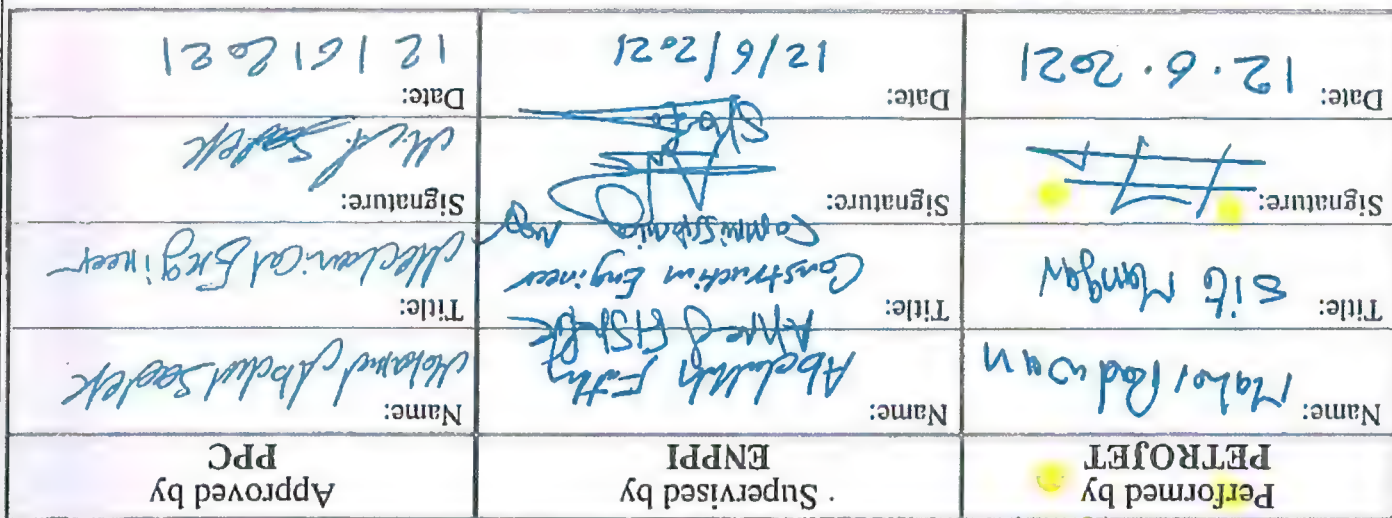 Performed by
PETROJET
Supervised by
ENPPI
Approved by
PPC
Name: Maher Radwan
Name: Abdullah Fathy
Ahmed
Name:
Mohamed Abdel Sadek
Title: Site Manger
Title: Construction Engineer
Commissioning
Title:
Mechanical Engineer
Signature:
Signature:
Signature:
M.A. Sadek
Date: 12.6.2021
Date:
12/6/2021
Date:
12/6/2021